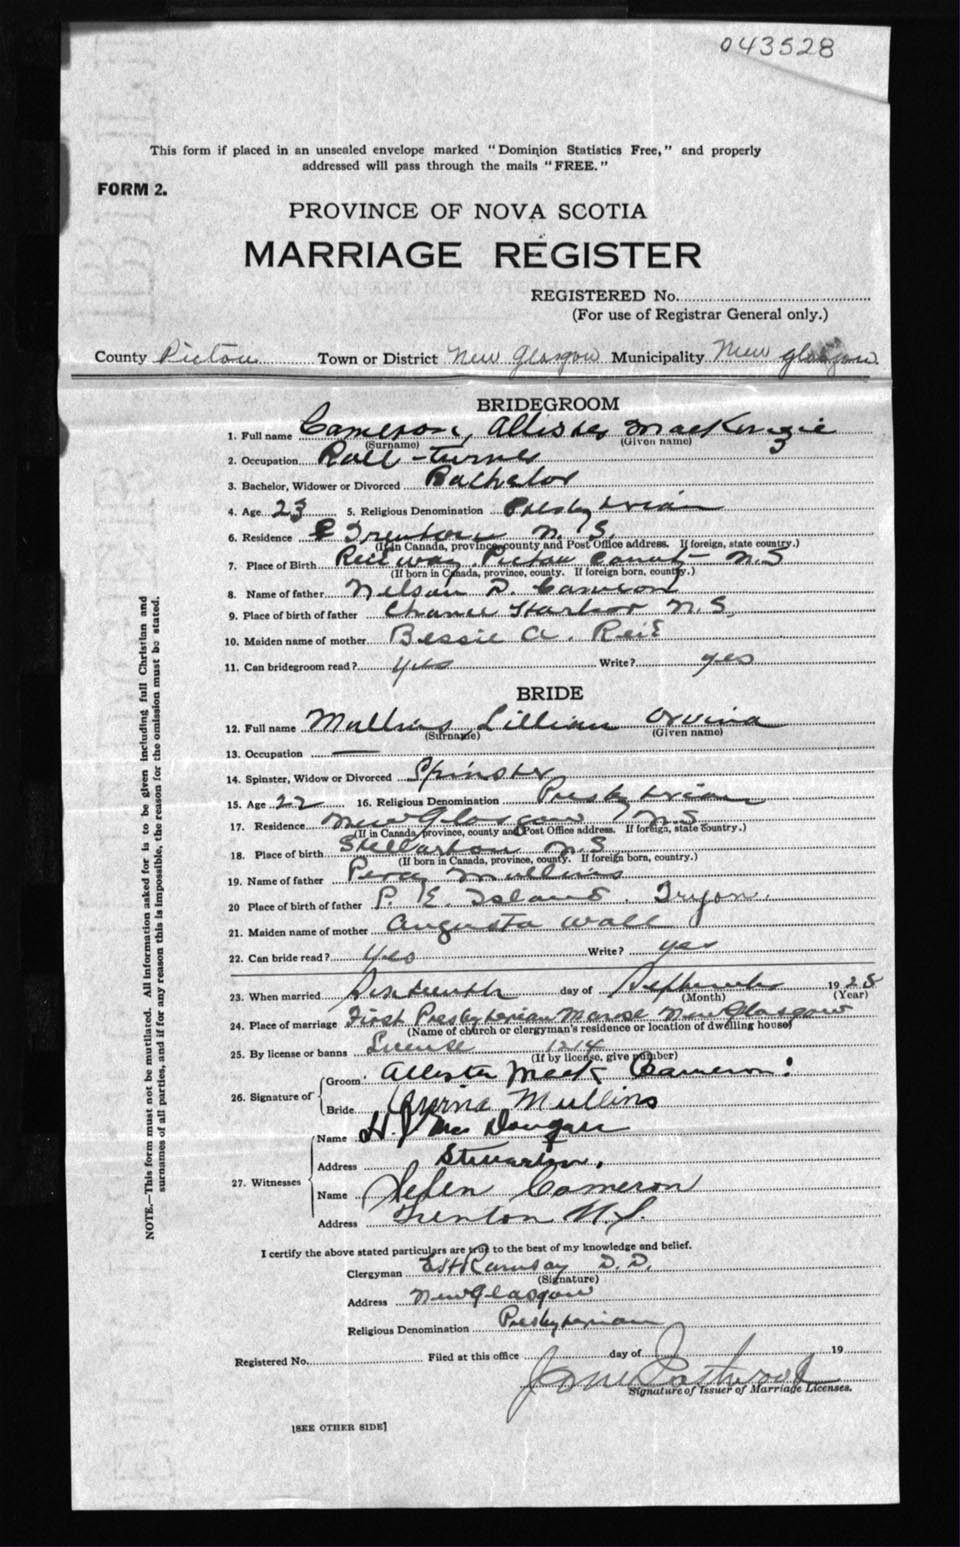 043528
This form if placed in an unsealed envelope marked "Dominion Statistics Free," and properly
addressed will pass through the mails "FREE."
FORM 2.
PROVINCE OF NOVA SCOTIA
MARRIAGE REGISTER
REGISTERED No.
(For use of Registrar General only.)
County Pictou Town or District New Glasgow Municipality New Glasgow
BRIDEGROOM
1. Full name Cameron, Allister MacKenzie
(Surname) (Given name)
2. Occupation Roll-turner
3. Bachelor, Widower or Divorced Bachelor
4. Age 23 5. Religious Denomination Presbyterian
6. Residence Trenton N.S.
(If in Canada, province, county and Post Office address. If foreign, state country.)
7. Place of Birth Pictou County N.S
(If born in Canada, province, county. If foreign born, country.)
8. Name of father Nelson D. Cameron
9. Place of birth of father Chance Harbor N.S.
10. Maiden name of mother Bessie A. Reid
11. Can bridegroom read? yes Write? yes
BRIDE
12. Full name Mullins Lillian Orvina
(Surname) (Given name)
13. Occupation —
14. Spinster, Widow or Divorced Spinster
15. Age 22 16. Religious Denomination Presbyterian
17. Residence New Glasgow N.S.
(If in Canada, province, county and Post Office address. If foreign, state country.)
18. Place of birth Stellarton N.S
(If born in Canada, province, county. If foreign born, country.)
19. Name of father Percy Mullins
20 Place of birth of father P. E. Island, Tryon.
21. Maiden name of mother Augusta Wall
22. Can bride read? Yes Write? yes
23. When married Sixteenth day of September 1928
(Month) (Year)
24. Place of marriage First Presbyterian Manse New Glasgow
(Name of church or clergyman's residence or location of dwelling house)
25. By license or banns License 1214
(If by license, give number)
26. Signature of Groom Allister Cameron
Bride Orvina Mullins
27. Witnesses Name H. J. MacDougall
Address Stellarton.
Name Helen Cameron
Address Trenton N.S.
I certify the above stated particulars are true to the best of my knowledge and belief.
Clergyman Ramsay D.D.
(Signature)
Address New Glasgow
Religious Denomination Presbyterian
Registered No. Filed at this office day of 19
Eastwood
Signature of Issuer of Marriage Licenses.
[SEE OTHER SIDE]
NOTE.—This form must not be mutilated. All information asked for is to be given including full Christian and
surnames of all parties, and if for any reason this is impossible, the reason for the omission must be stated.